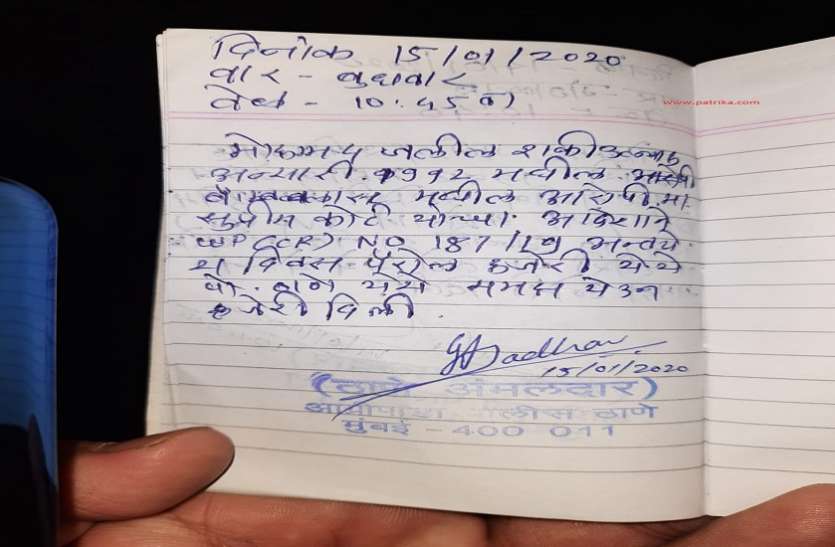 दिनांक 15/01/2020
वार - बुधवार
वेळ - 10.45 वा
www.patrika.com
मोहम्मद जलील शकीउल्लाह
अन्सारी. 1992 मधील
मधील आरोपी मा.
सुप्रीम कोर्ट यांच्या आदेशाने
WP (CR) NO 187/19 अन्वये
दिवस पॅरोल हजेरी येथे
पो. ठाणे समक्ष येऊन
हजेरी दिली.
15/01/2020
(ठाणे अंमलदार)
आग्रीपाडा पोलीस ठाणे
मुंबई - 400 011